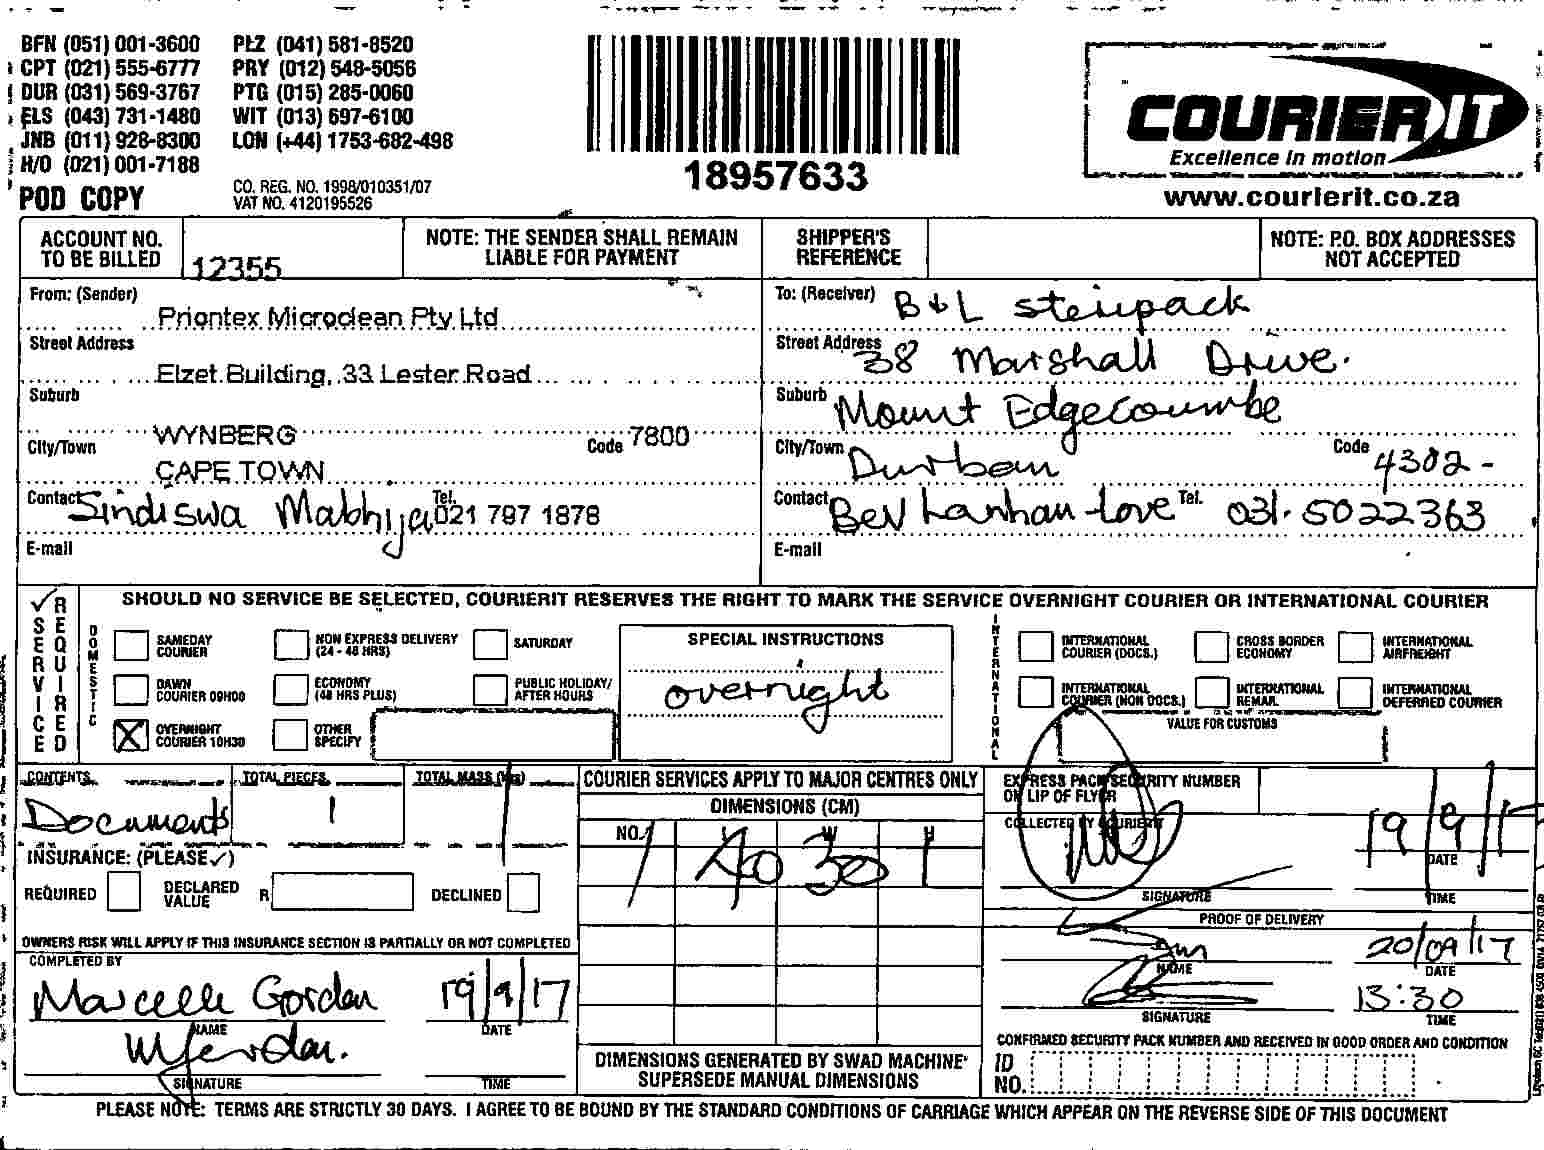 BFN (051) 001-3600 PLZ (041) 581-8520
CPT (021) 555-6777 PRY (012) 548-5056
DUR (031) 569-3767 PTG (015) 285-0060
ELS (043) 731-1480 WIT (013) 697-6100
JNB (011) 928-8300 LON (+44) 1753-682-498
H/O (021) 001-7188
POD COPY
CO. REG. NO. 1998/010351/07
VAT NO. 4120195526
18957633
COURIER IT
Excellence in motion
www.courierit.co.za
ACCOUNT NO. TO BE BILLED 12355
NOTE: THE SENDER SHALL REMAIN LIABLE FOR PAYMENT
SHIPPER'S REFERENCE
NOTE: P.O. BOX ADDRESSES NOT ACCEPTED
From: (Sender)
Priontex Microclean Pty Ltd
Street Address
Elzet Building, 33 Lester Road
Suburb
WYNBERG
City/Town
Code 7800
CAPE TOWN
Contact Sindiswa Mabhija Tel. 021 797 1878
E-mail
To: (Receiver) B & L steripack
Street Address 38 Marshall Drive.
Suburb Mount Edgecoumbe
City/Town Durban Code 4302 -
Contact Bev Lanham-Love Tel. 031. 5022363
E-mail
✓ SERVICE REQUIRED
SHOULD NO SERVICE BE SELECTED, COURIERIT RESERVES THE RIGHT TO MARK THE SERVICE OVERNIGHT COURIER OR INTERNATIONAL COURIER
DOMESTIC
SAMEDAY COURIER
NON EXPRESS DELIVERY (24 - 48 HRS)
SATURDAY
DAWN COURIER 09H00
ECONOMY (48 HRS PLUS)
PUBLIC HOLIDAY/ AFTER HOURS
X OVERNIGHT COURIER 10H30
OTHER SPECIFY
SPECIAL INSTRUCTIONS
overnight
INTERNATIONAL
INTERNATIONAL COURIER (DOCS.)
CROSS BORDER ECONOMY
INTERNATIONAL AIRFREIGHT
INTERNATIONAL COURIER (NON DOCS.)
INTERNATIONAL REMAIL
INTERNATIONAL DEFERRED COURIER
VALUE FOR CUSTOMS
CONTENTS
Documents
TOTAL PIECES
1
TOTAL MASS (kgs)
1
INSURANCE: (PLEASE ✓)
REQUIRED
DECLARED VALUE R
DECLINED
OWNERS RISK WILL APPLY IF THIS INSURANCE SECTION IS PARTIALLY OR NOT COMPLETED
COMPLETED BY
Marcelle Gordon 19/9/17
NAME DATE
SIGNATURE TIME
COURIER SERVICES APPLY TO MAJOR CENTRES ONLY
DIMENSIONS (CM)
NO. L W H
1 40 30 1
DIMENSIONS GENERATED BY SWAD MACHINE SUPERSEDE MANUAL DIMENSIONS
EXPRESS PACK SECURITY NUMBER ON LIP OF FLYER
COLLECTED BY COURIERIT
19/9/17
DATE
SIGNATURE TIME
PROOF OF DELIVERY
20/09/17
NAME DATE
13:30
SIGNATURE TIME
CONFIRMED SECURITY PACK NUMBER AND RECEIVED IN GOOD ORDER AND CONDITION
ID NO.
PLEASE NOTE: TERMS ARE STRICTLY 30 DAYS. I AGREE TO BE BOUND BY THE STANDARD CONDITIONS OF CARRIAGE WHICH APPEAR ON THE REVERSE SIDE OF THIS DOCUMENT